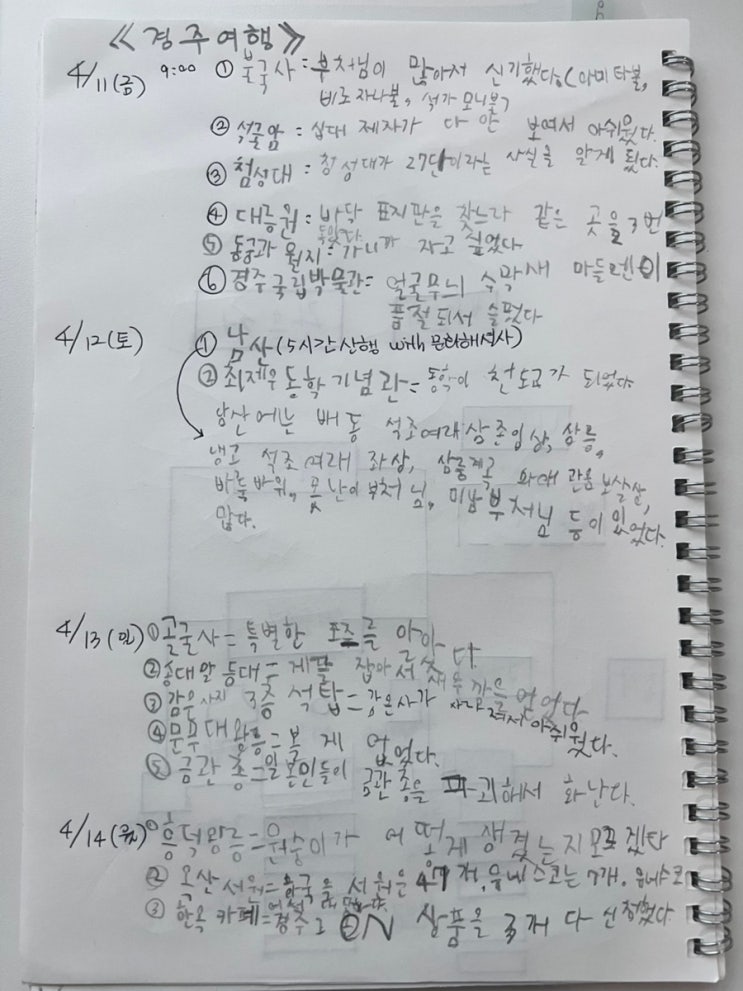 《경주여행》
4/11(금) 9:00 ① 불국사 = 부처님이 많아서 신기했다.(아미타불,
비로자나불, 석가모니불)
② 석굴암 = 십대 제자가 다 안 보여서 아쉬웠다.
③ 첨성대 : 첨성대가 27단이라는 사실을 알게 됐다.
④ 대릉원 = 바닥 표지판을 찾느라 같은 곳을 3번
돌았다.
⑤ 동궁과 월지 = 가니까 자고 싶었다
⑥ 경주국립박물관= 얼굴무늬 수막새 마들렌이
품절되서 슬펐다
4/12(토) ① 남산(5시간산행 with 문화해설사)
② 최제우 동학기념관= 동학이 천도교가 되었다
남산에는 배동 석조여래삼존입상, 삼릉,
냉골 석조여래 좌상, 삼릉계곡 마애관음보살상,
바둑바위, 못난이 부처님, 미남 부처님 등이 있었다.
많다.
4/13(일) ① 골굴사= 특별한 포즈를
② 송대말등대= 게를 잡아서 새우깡을 얻었다
③ 감은사지 3층 석탑= 감은사가 사라져서 아쉬웠다.
④ 문무대왕릉=볼 게 없었다.
⑤ 금관총=일본인들이 금관총을 파괴해서 화난다.
4/14(월) ① 흥덕왕릉=원숭이가 어떻게 생겼는지모르겠다
② 옥산서원=한국은 서원은 47개, 유네스코는 9개. 유네스코
③ 한옥 카페=경주로ON 상품을 3개 다 신청했다